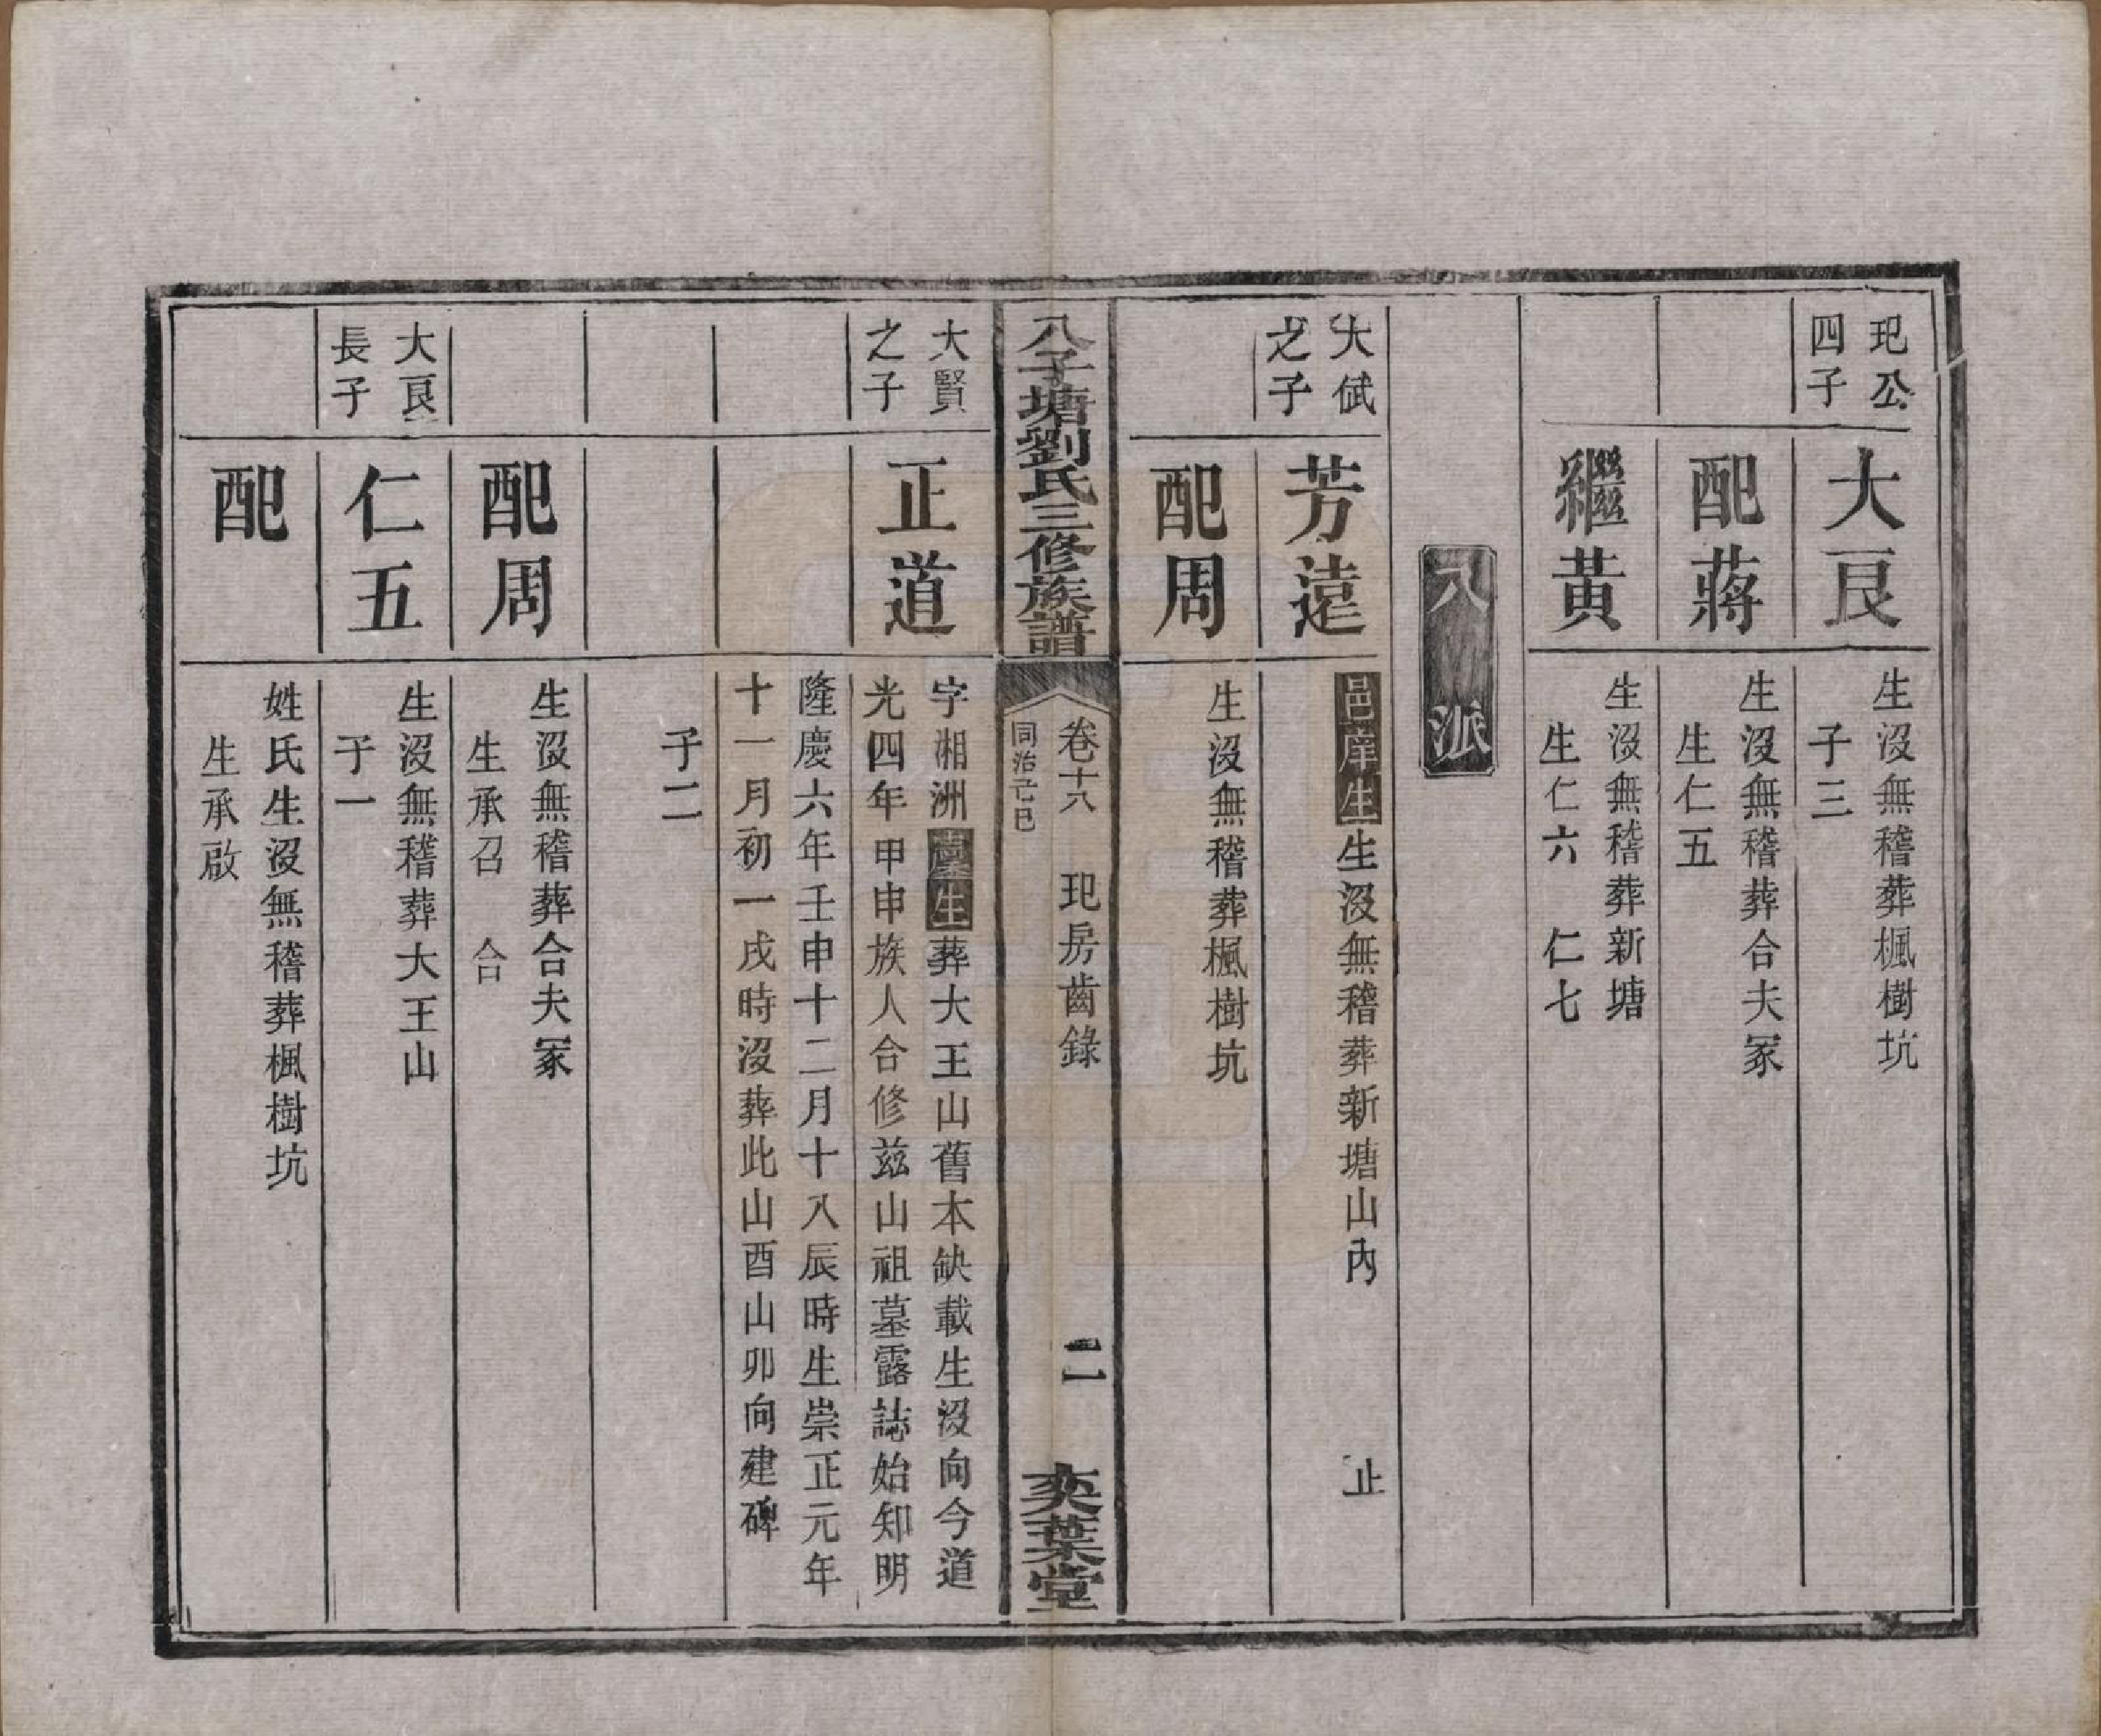 玘公
四子
大良
生沒無稽葬楓樹坑
子三
配蔣
生沒無稽葬合夫冢
生仁五
繼黃
生沒無稽葬新塘
生仁六 仁七
八派
大斌
之子
芳遠
邑庠生生沒無稽葬新塘山內 止
配周
生沒無稽葬楓樹坑
八子塘劉氏三修族譜
卷十八 玘房齒錄 二
同治己巳
奕葉堂
大賢
之子
正道
字湘洲𪪺生葬大王山舊本缺載生沒向今道
光四年甲申族人合修茲山祖墓露誌始知明
隆慶六年壬申十二月十八辰時生崇正元年
十一月初一戌時沒葬此山酉山卯向建碑
子二
配周
生沒無稽葬合夫冢
生承召 合
大良
長子
仁五
生沒無稽葬大王山
子一
配
姓氏生沒無稽葬楓樹坑
生承啟